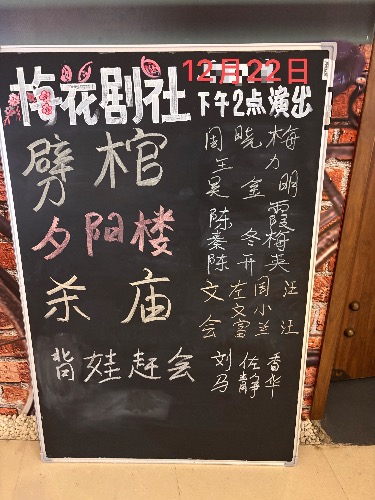 梅花剧社 12月22日
下午2点演出
劈棺
周晓梅
王力
吴金明
夕阳楼
陈霞
秦冬梅
陈开英
杀庙
文 左 周 汪
文 小
会 富 兰 汪
背娃赶会
刘佐香
马静华